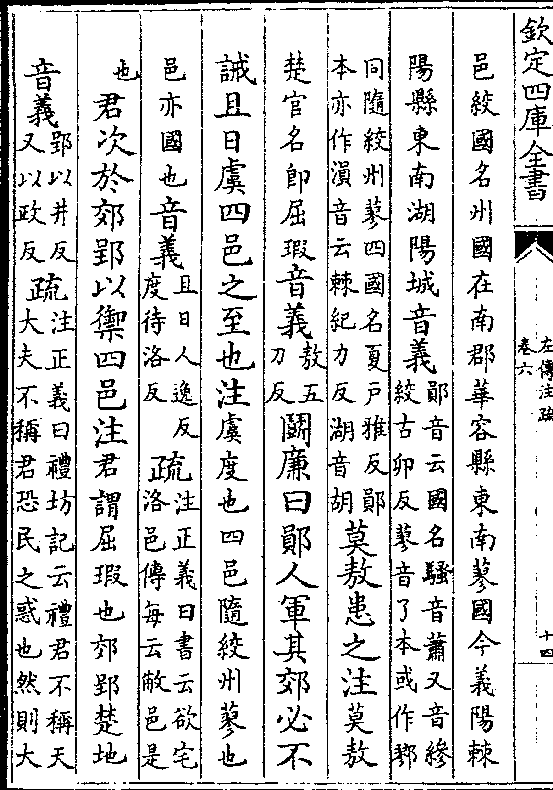 欽定四庫全書
左傳注疏
卷六
十四
邑絞國名州國在南郡華容縣東南蓼國今義陽棘
陽縣東南湖陽城音義
鄖音云國名騷音蕭又音縿
絞古卯反蓼音了本或作鄝
同隨絞州蓼四國名夏戶雅反鄖
本亦作溳音云棘紀力反湖音胡
莫敖患之注莫敖
楚官名即屈瑕音義
敖五
刀反
鬬廉曰鄖人軍其郊必不
誡且日虞四邑之至也注虞度也四邑隨絞州蓼也
邑亦國也音義
且日人逸反
度待洛反
疏
注正義曰書云欲宅
洛邑傳每云敝邑是
也
君次於郊郢以禦四邑注君謂屈瑕也郊郢楚地
音義
郢以井反
又以政反
疏
注正義曰禮坊記云禮君不稱天
大夫不稱君恐民之惑也然則大